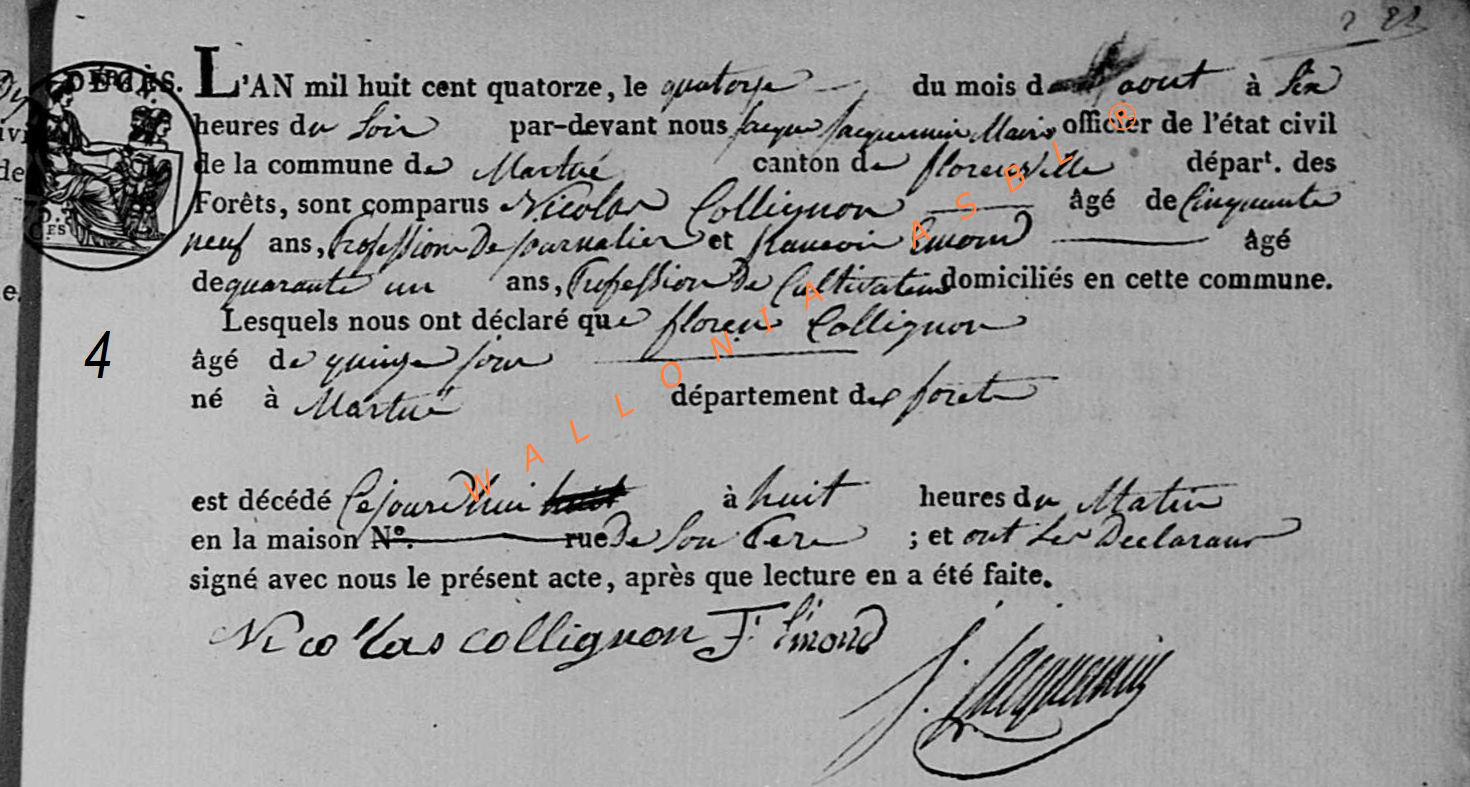 DÉCÈS. L'AN mil huit cent quatorze, le quatorze du mois d aout à Six
heures du Soir par-devant nous Jacque Jacquemin Maire officier de l'état civil
de la commune de Martué canton de florenville départ. des
Forêts, sont comparus Nicolas Collignon âgé de Cinquante
neuf ans, Profession De Journalier et francois Emond âgé
de quarante un ans, Profession De Cultivateur domiciliés en cette commune.
Lesquels nous ont déclaré que floren Collignon
4
âgé de quinze jour
né à Martué département des foret
est décédé Cejourdhui huit à huit heures du Matin
en la maison N°. rue De Son Pere ; et ont Les Declarant
signé avec nous le présent acte, après que lecture en a été faite.
Nicolas collignon F. Emond
J. Jacquemin
WALLONIA ASBL ®